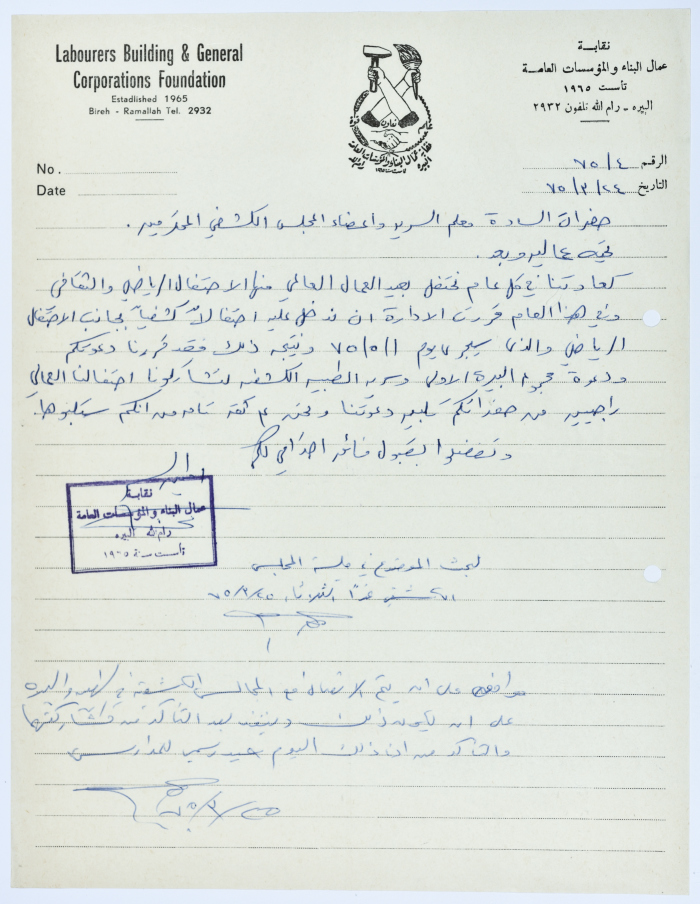 Labourers Building & General
Corporations Foundation
Estadlished 1965
Bireh - Ramallah Tel. 2932
نقابة
عمال البناء والمؤسسات العامة
تأسست ١٩٦٥
البيره - رام الله تلفون ٢٩٣٢
تعاون
No.
Date
الرقم ٧٥/٤
التاريخ ٧٥/٣/٢٤
حضرات السادة معلم السرية واعضاء المجلس الكشفي المحترمين.
تحية عمالية وبعد.
كعادتنا في كل عام نحتفل بعيد العمال العالمي منها الاحتفال الرياضي والثقافي
وفي هذا العام قررت الادارة ان ندخل عليه احتفالاً كشفياً بجانب الاحتفال
الرياضي والذي سيجري يوم ٧٥/٥/١ ونتيجة ذلك فقد قررنا دعوتكم
ودعوة مجموعة البيرة الاولى وسرية الطيبة الكشفية لتشاركونا احتفالنا العمالي
راجيين من حضراتكم تلبية دعوتنا ونحن على ثقة تامة من انكم ستلبوها.
وتفضلوا بقبول فائق احترامي لكم
نقابة
عمال البناء والمؤسسات العامة
رام الله البيره
تأسست سنة ١٩٦٥
لبحث الموضوع في جلسة المجلس
الكشفي غداً الثلاثاء ٧٥/٣/٢٥
موافق على ان يتم الاتصال مع المجالس الكشفية في
على ان يكون ذلك بعد التأكد من
والتأكد من ان ذلك اليوم عيد رسمي للمدارس